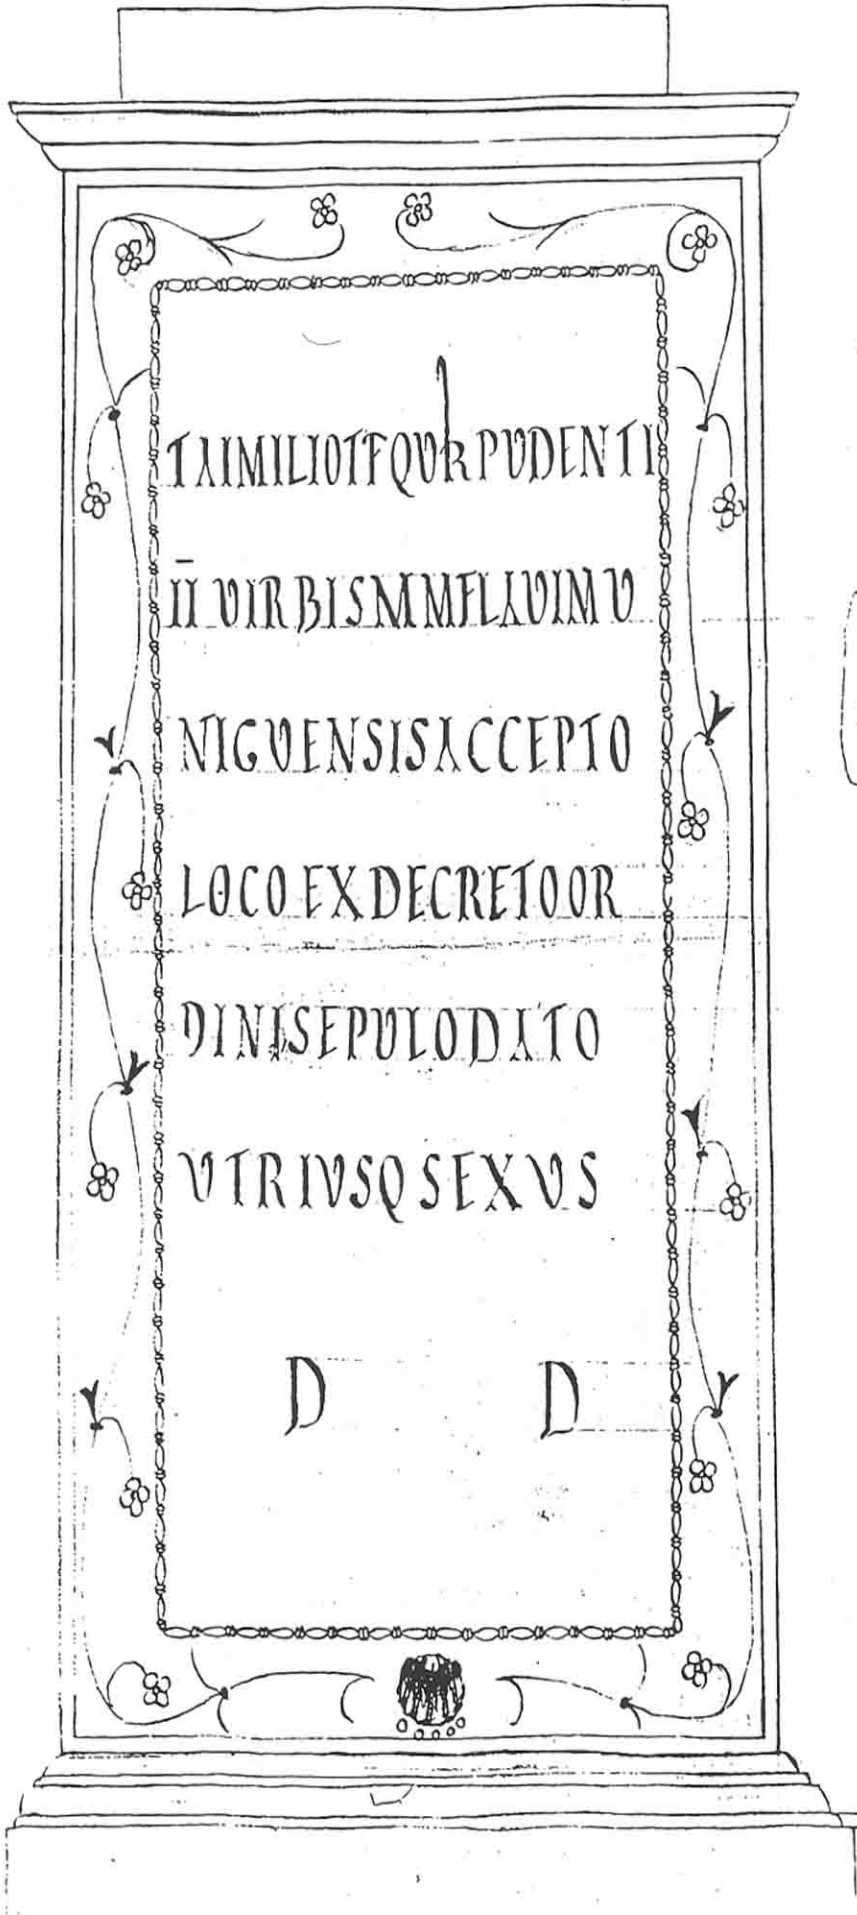 TAIMILIOTFQUIRPUDENTI
II VIRBISMMFLAVIMU
NIGUENSISACCEPTO
LOCO EX DECRETO OR
DINISEPULODATO
UTRIUSQ SEXUS
D D